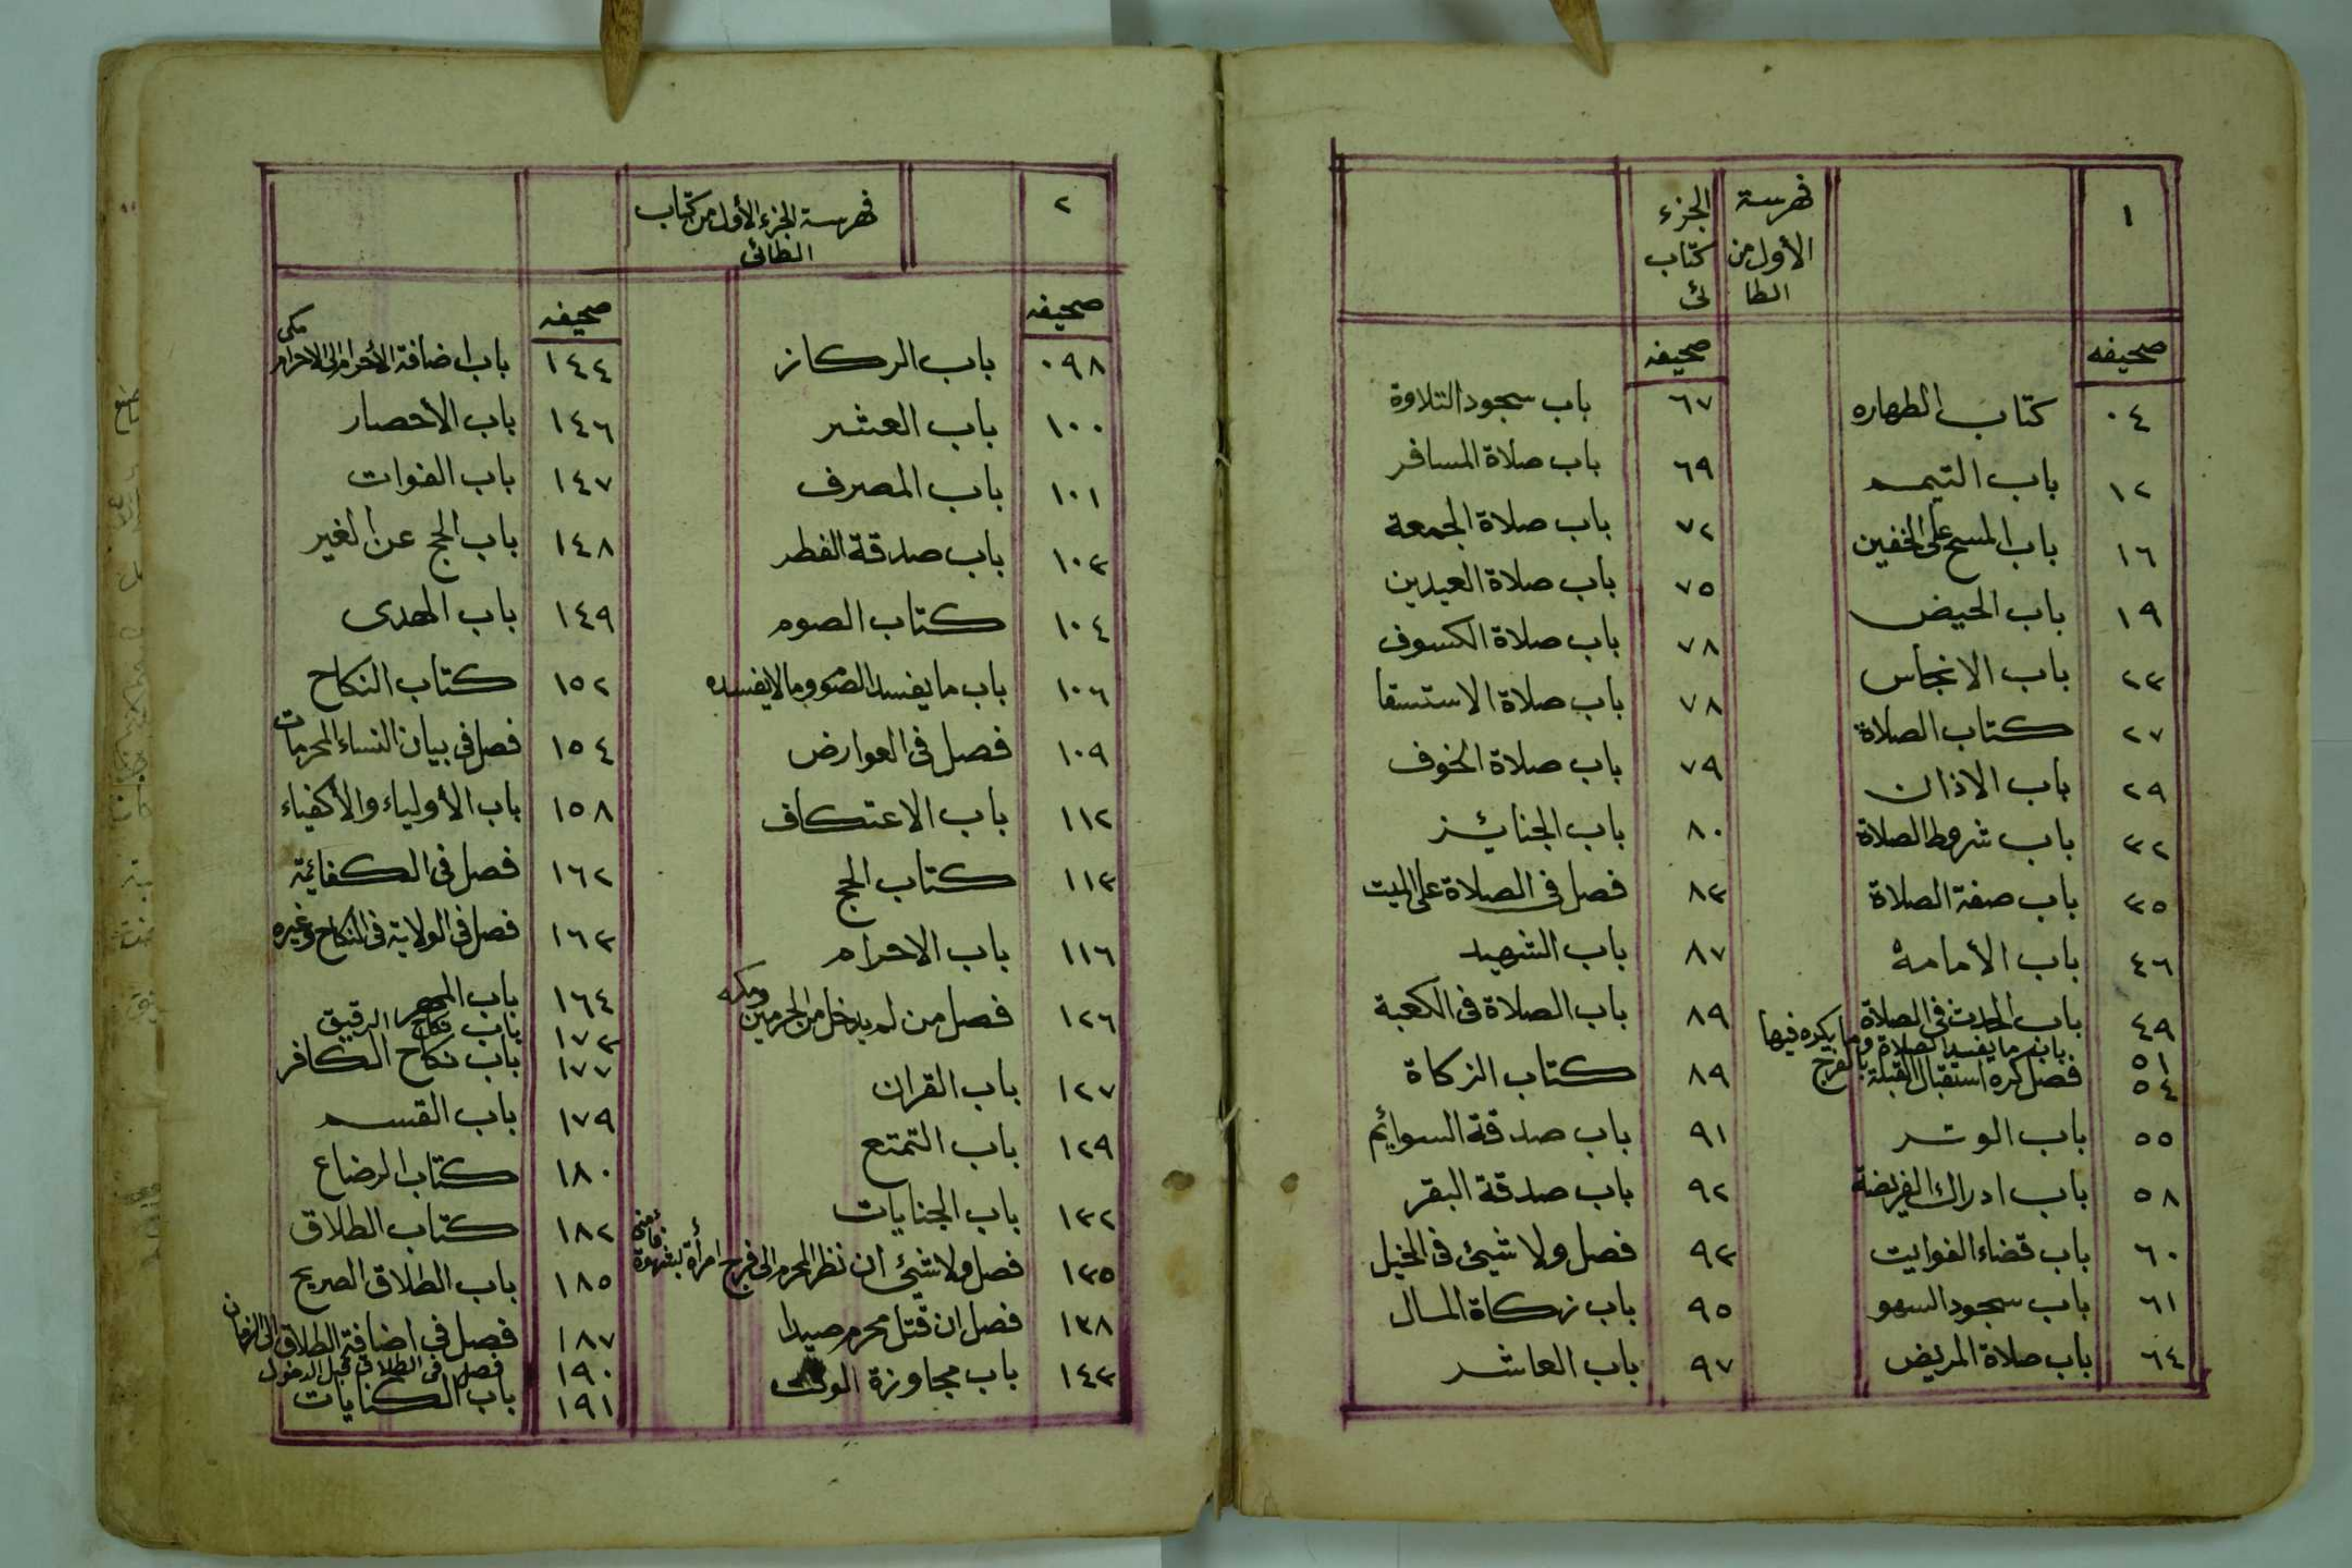 ١
فهرسة الجزء
الأول من كتاب
الطا ئى
صحيفه
٠٤ كتاب الطهاره
١٢ باب التيمم
١٦ باب المسح على الخفين
١٩ باب الحيض
٢٣ باب الانجاس
٢٧ كتاب الصلاة
٢٩ باب الاذان
٣٢ باب شروط الصلاة
٣٥ باب صفة الصلاة
٤٦ باب الأمامة
٤٩ باب الحدث فى الصلاة
٥١ باب ما يفسد الصلاة وما يكره فيها
٥٤ فصل كره استقبال القبلة بالفرج
٥٥ باب الوتر
٥٨ باب ادراك الفريضة
٦٠ باب قضاء الفوايت
٦١ باب سجود السهو
٦٤ باب صلاة المريض
صحيفه
٦٧ باب سجود التلاوة
٦٩ باب صلاة المسافر
٧٢ باب صلاة الجمعة
٧٥ باب صلاة العيدين
٧٨ باب صلاة الكسوف
٧٨ باب صلاة الاستسقا
٧٩ باب صلاة الخوف
٨٠ باب الجنائز
٨٣ فصل فى الصلاة على الميت
٨٧ باب الشهيد
٨٩ باب الصلاة فى الكعبة
٨٩ كتاب الزكاة
٩١ باب صدقة السوايم
٩٢ باب صدقة البقر
٩٣ فصل ولا شيئ فى الخيل
٩٥ باب زكاة المال
٩٧ باب العاشر
٢
فهرسة الجزء الأول من كتاب
الطائى
صحيفه
٠٩٨ باب الركاز
١٠٠ باب العشر
١٠١ باب المصرف
١٠٣ باب صدقة الفطر
١٠٤ كتاب الصوم
١٠٦ باب ما يفسد الصوم وما لا يفسده
١٠٩ فصل فى العوارض
١١٢ باب الاعتكاف
١١٣ كتاب الحج
١١٦ باب الاحرام
١٢٦ فصل من لم يدخل من المحرمين مكه
١٢٧ باب القران
١٢٩ باب التمتع
١٣٢ باب الجنايات
١٣٥ فصل ولا شيئ ان نظر المحرم الى فرج امرأة بشهوة فأمنى
١٣٨ فصل ان قتل محرم صيدا
١٤٣ باب مجاوزة الوقت
صحيفه
١٤٤ باب اضافة الأحرام الى الاحرام مكى
١٤٦ باب الأحصار
١٤٧ باب الفوات
١٤٨ باب الحج عن الغير
١٤٩ باب الهدى
١٥٢ كتاب النكاح
١٥٤ فصل فى بيان النساء المحرمات
١٥٨ باب الأولياء والأكفياء
١٦٢ فصل فى الكفائية
١٦٣ فصل فى الولاية فى النكاح وغيره
١٦٤ باب المهر
١٧٣ باب نكاح الرقيق
١٧٧ باب نكاح الكافر
١٧٩ باب القسم
١٨٠ كتاب الرضاع
١٨٢ كتاب الطلاق
١٨٥ باب الطلاق الصريح
١٨٧ فصل فى اضافة الطلاق الى الزمان
١٩٠ فصل فى الطلاق قبل الدخول
١٩١ باب الكنايات